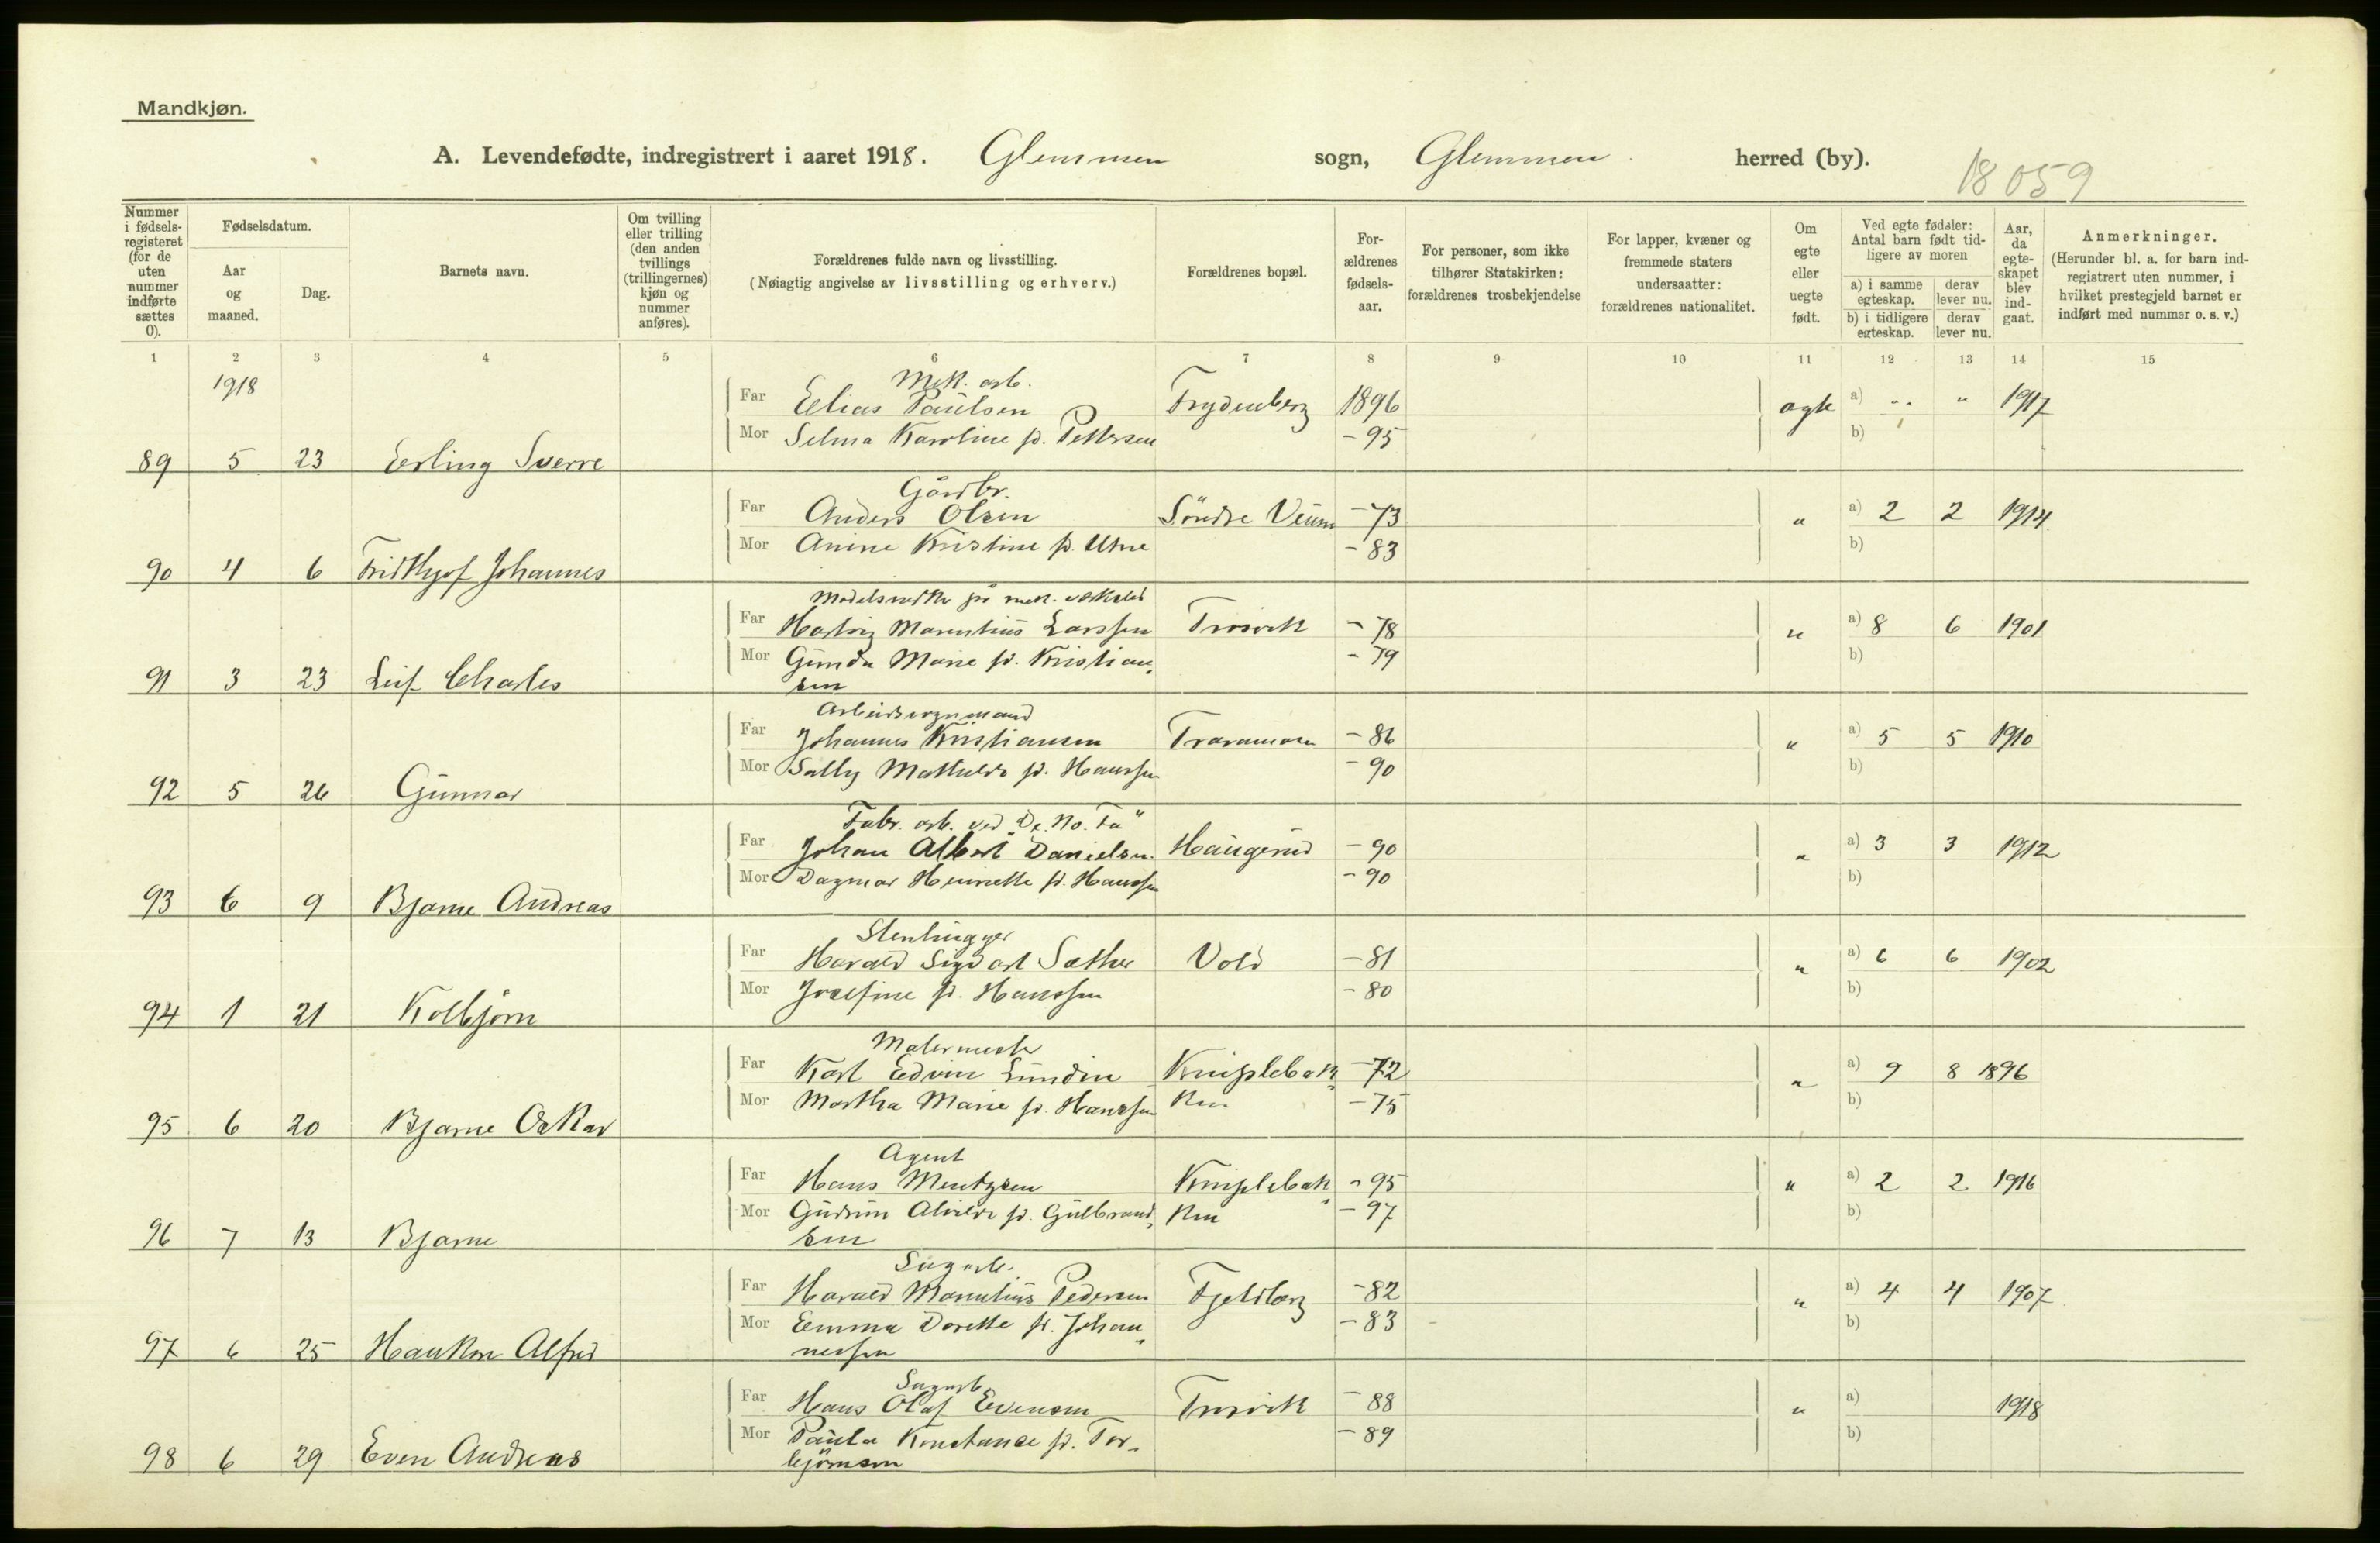 Mandkjøn.
A. Levendefødte, indregistrert i aaret 1918. Glemmen sogn, Glemmen herred (by).
18059
Nummer i fødsels-registeret (for de uten nummer indførte sættes 0).
Fødselsdatum.
Aar og maaned.
Dag.
Barnets navn.
Om tvilling eller trilling (den anden tvillings (trillingernes) kjøn og nummer anføres).
Forældrenes fulde navn og livsstilling.
(Nøiagtig angivelse av livsstilling og erhverv.)
Forældrenes bopæl.
For-ældrenes fødsels-aar.
For personer, som ikke tilhører Statskirken: forældrenes trosbekjendelse
For lapper, kvæner og fremmede staters undersaatter: forældrenes nationalitet.
Om egte eller uegte født.
Ved egte fødsler: Antal barn født tid-ligere av moren
a) i samme egteskap.
derav lever nu.
b) i tidligere egteskap.
derav lever nu.
Aar, da egte-skapet blev ind-gaat.
Anmerkninger.
(Herunder bl. a. for barn ind-registrert uten nummer, i hvilket prestegjeld barnet er indført med nummer o. s. v.)
1 2 3 4 5 6 7 8 9 10 11 12 13 14 15
1918
Mek. arb.
Far Elias Paulsen Frydenberg 1896 ægte a) " " 1917
Mor Selma Karoline f. Pettersen -95 b)
89 5 23 Erling Sverre
Gårdbr.
Far Anders Olsen Söndre Veum -73 " a) 2 2 1914
Mor Anine Kristine f. Utne -83 b)
90 4 6 Fridthjof Johannes
Modelsnedker på mek. verksted
Far Hartvig Marentius Larssen Trosvik -78 " a) 8 6 1901
Mor Gunda Marie f. Kristian- -79 b)
sen
91 3 23 Leif Charles
Arbeidsvognmand
Far Johannes Kristiansen Traramoen -86 " a) 5 5 1910
Mor Sally Mathilde f. Hanssen -90 b)
92 5 26 Gunnar
Fabr. arb. ved "De. No. Fa"
Far Johan Albert Danielsen Haugerud -90 " a) 3 3 1912
Mor Dagmar Henriette f. Hanssen -90 b)
93 6 9 Bjarne Andreas
Stenhugger
Far Harald Sigvart Sæther Vold -81 " a) 6 6 1902
Mor Josefine f. Hanssen -80 b)
94 1 21 Kolbjørn
Malermester
Far Karl Edvin Lundin Kniplebak- -72 " a) 9 8 1896
Mor Martha Marie f. Hanssen ken -75 b)
95 6 20 Bjarne Oskar
Agent
Far Hans Mentzsen Kniplebak- -95 " a) 2 2 1916
Mor Gudrun Alvilde f. Gulbrand- ken -97 b)
sen
96 7 13 Bjarne
Sagarb.
Far Harald Marentius Pedersen Fjeldberg -82 " a) 4 4 1907
Mor Emma Dorette f. Johan- -83 b)
nessen
97 6 25 Haakon Alfred
Sagarb.
Far Hans Olaf Evensen Trosvik -88 " a) 1918
Mor Paula Konstanse f. Tor- -89 b)
bjørnsen
98 6 29 Even Andreas